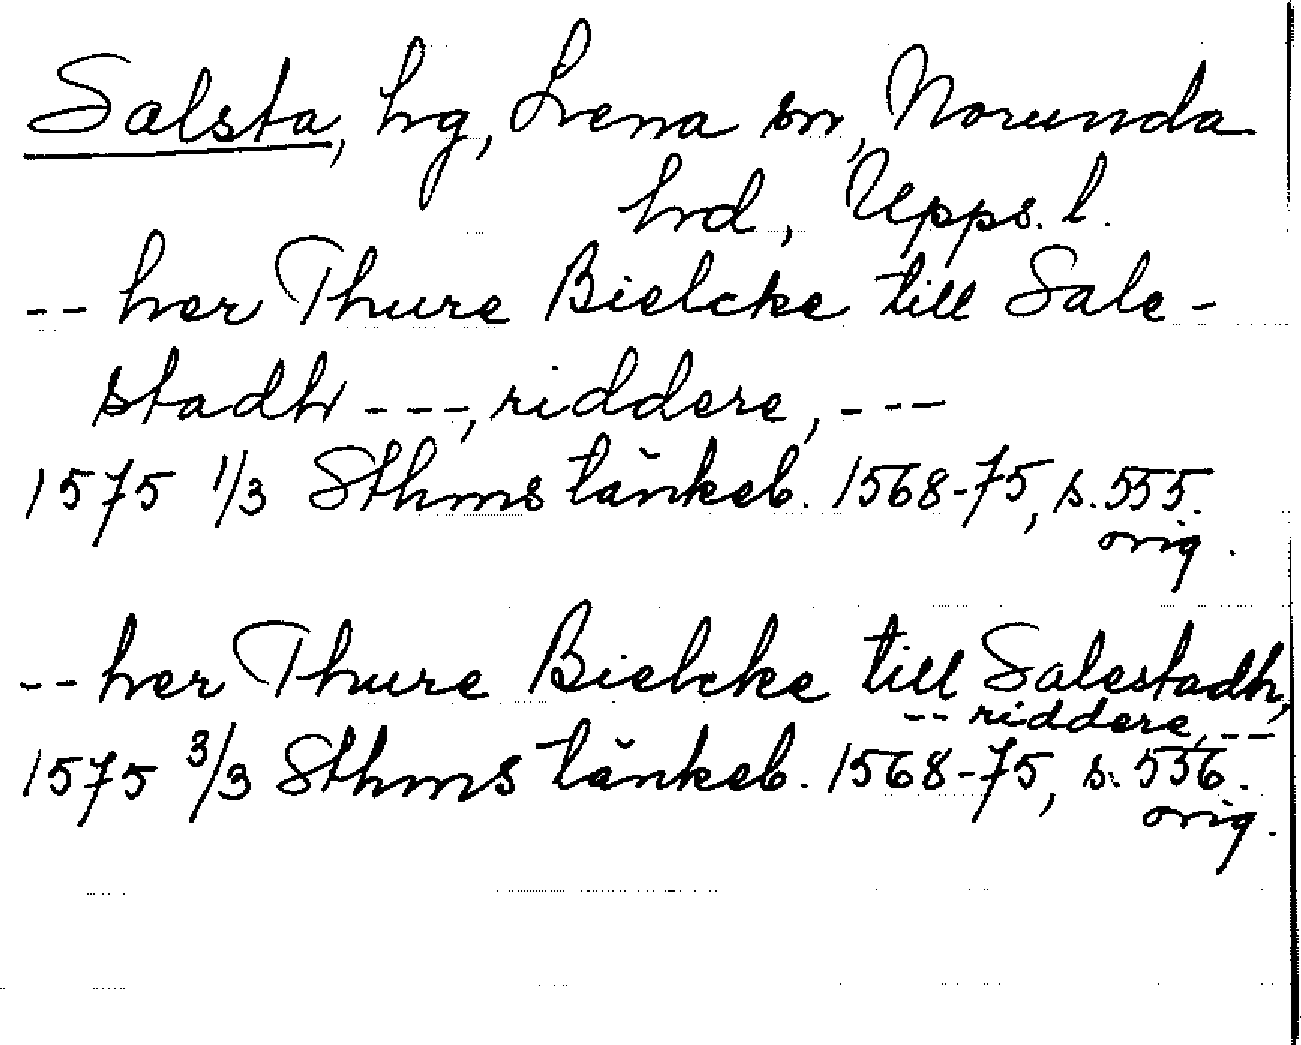 Salsta, hg, Lena sn, Norunda
hrd, Upps. l.
-- her Thure Bielcke till Sale-
stadh ---, riddere, ---
1575 1/3 Sthms tänkeb. 1568-75, s. 555.
orig.
-- her Thure Bielcke till Salestadh,
-- riddere, --
1575 3/3 Sthms tänkeb. 1568-75, s. 556.
orig.